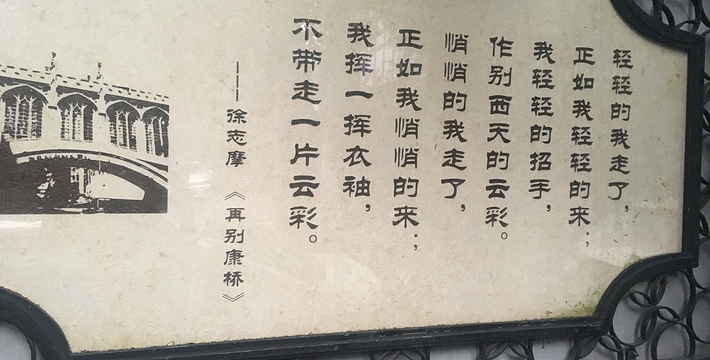 轻轻的我走了，
正如我轻轻的来；
我轻轻的招手，
作别西天的云彩。
悄悄的我走了，
正如我悄悄的来；
我挥一挥衣袖，
不带走一片云彩。
——徐志摩 《再别康桥》